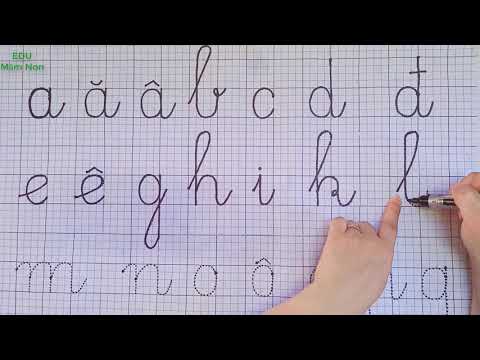 EDU
Mầm Non
a ă â b c d đ
e ê g h i k l
m n o ô q